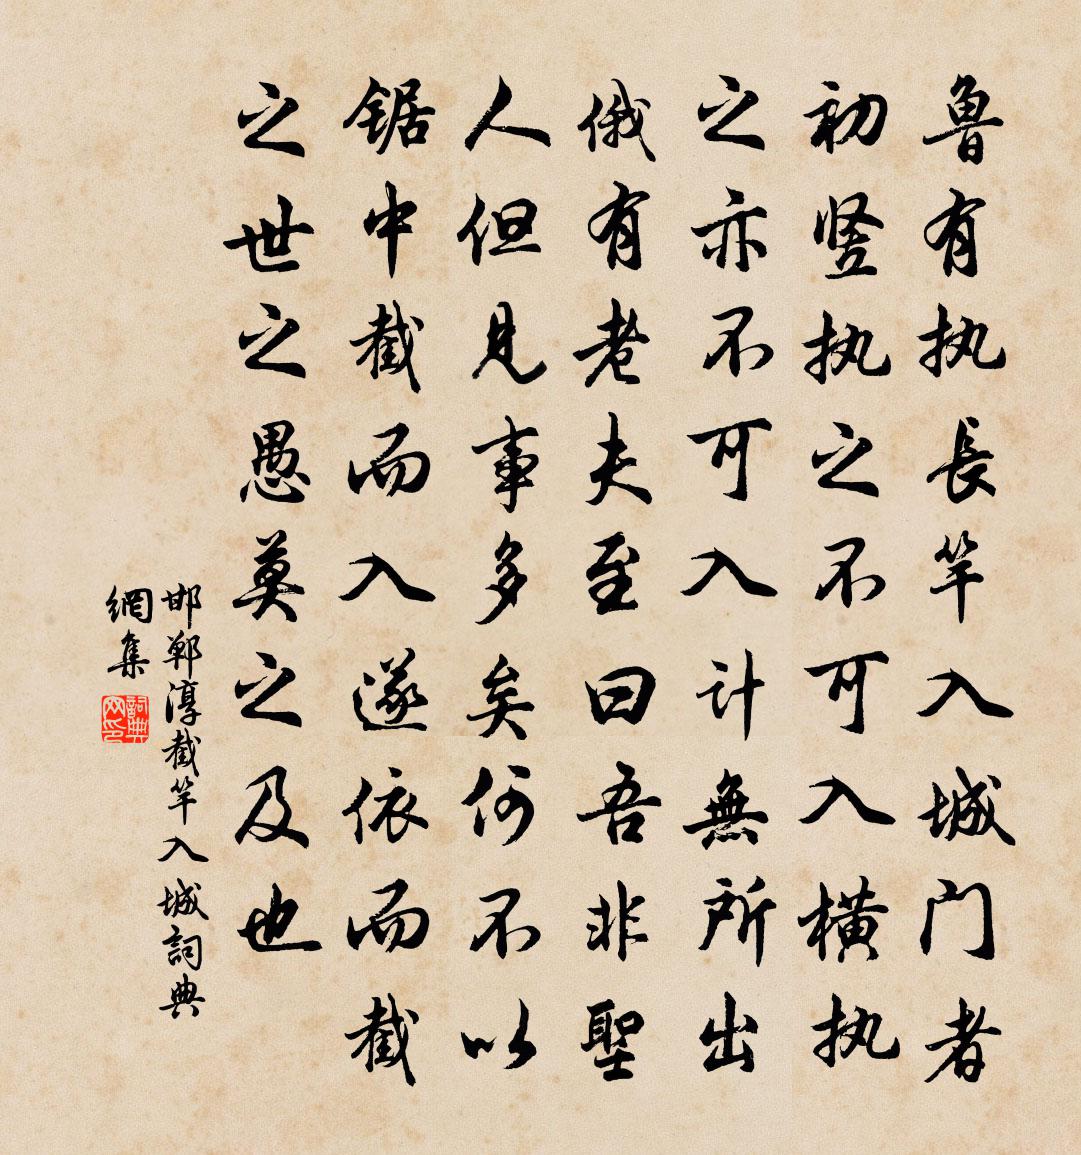 魯有执長竿入城门者
初竖执之不可入横执
之亦不可入计無所出
俄有老夫至曰吾非聖
人但见事多矣何不以
锯中截而入遂依而截
之世之愚莫之及也
邯郸淳截竿入城詞典
網集
詞典
网印